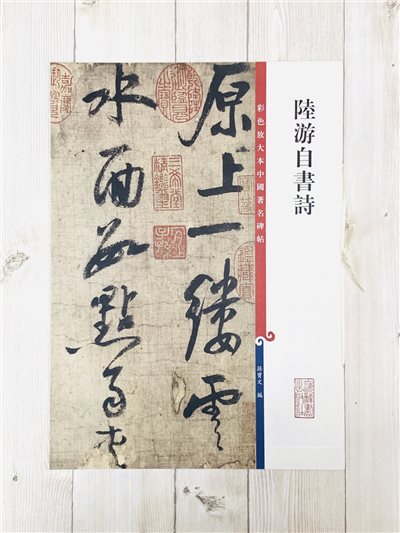 陸游自書詩
彩色放大本中國著名碑帖
孫寶文 編
原上一縷雲
水面數點雨